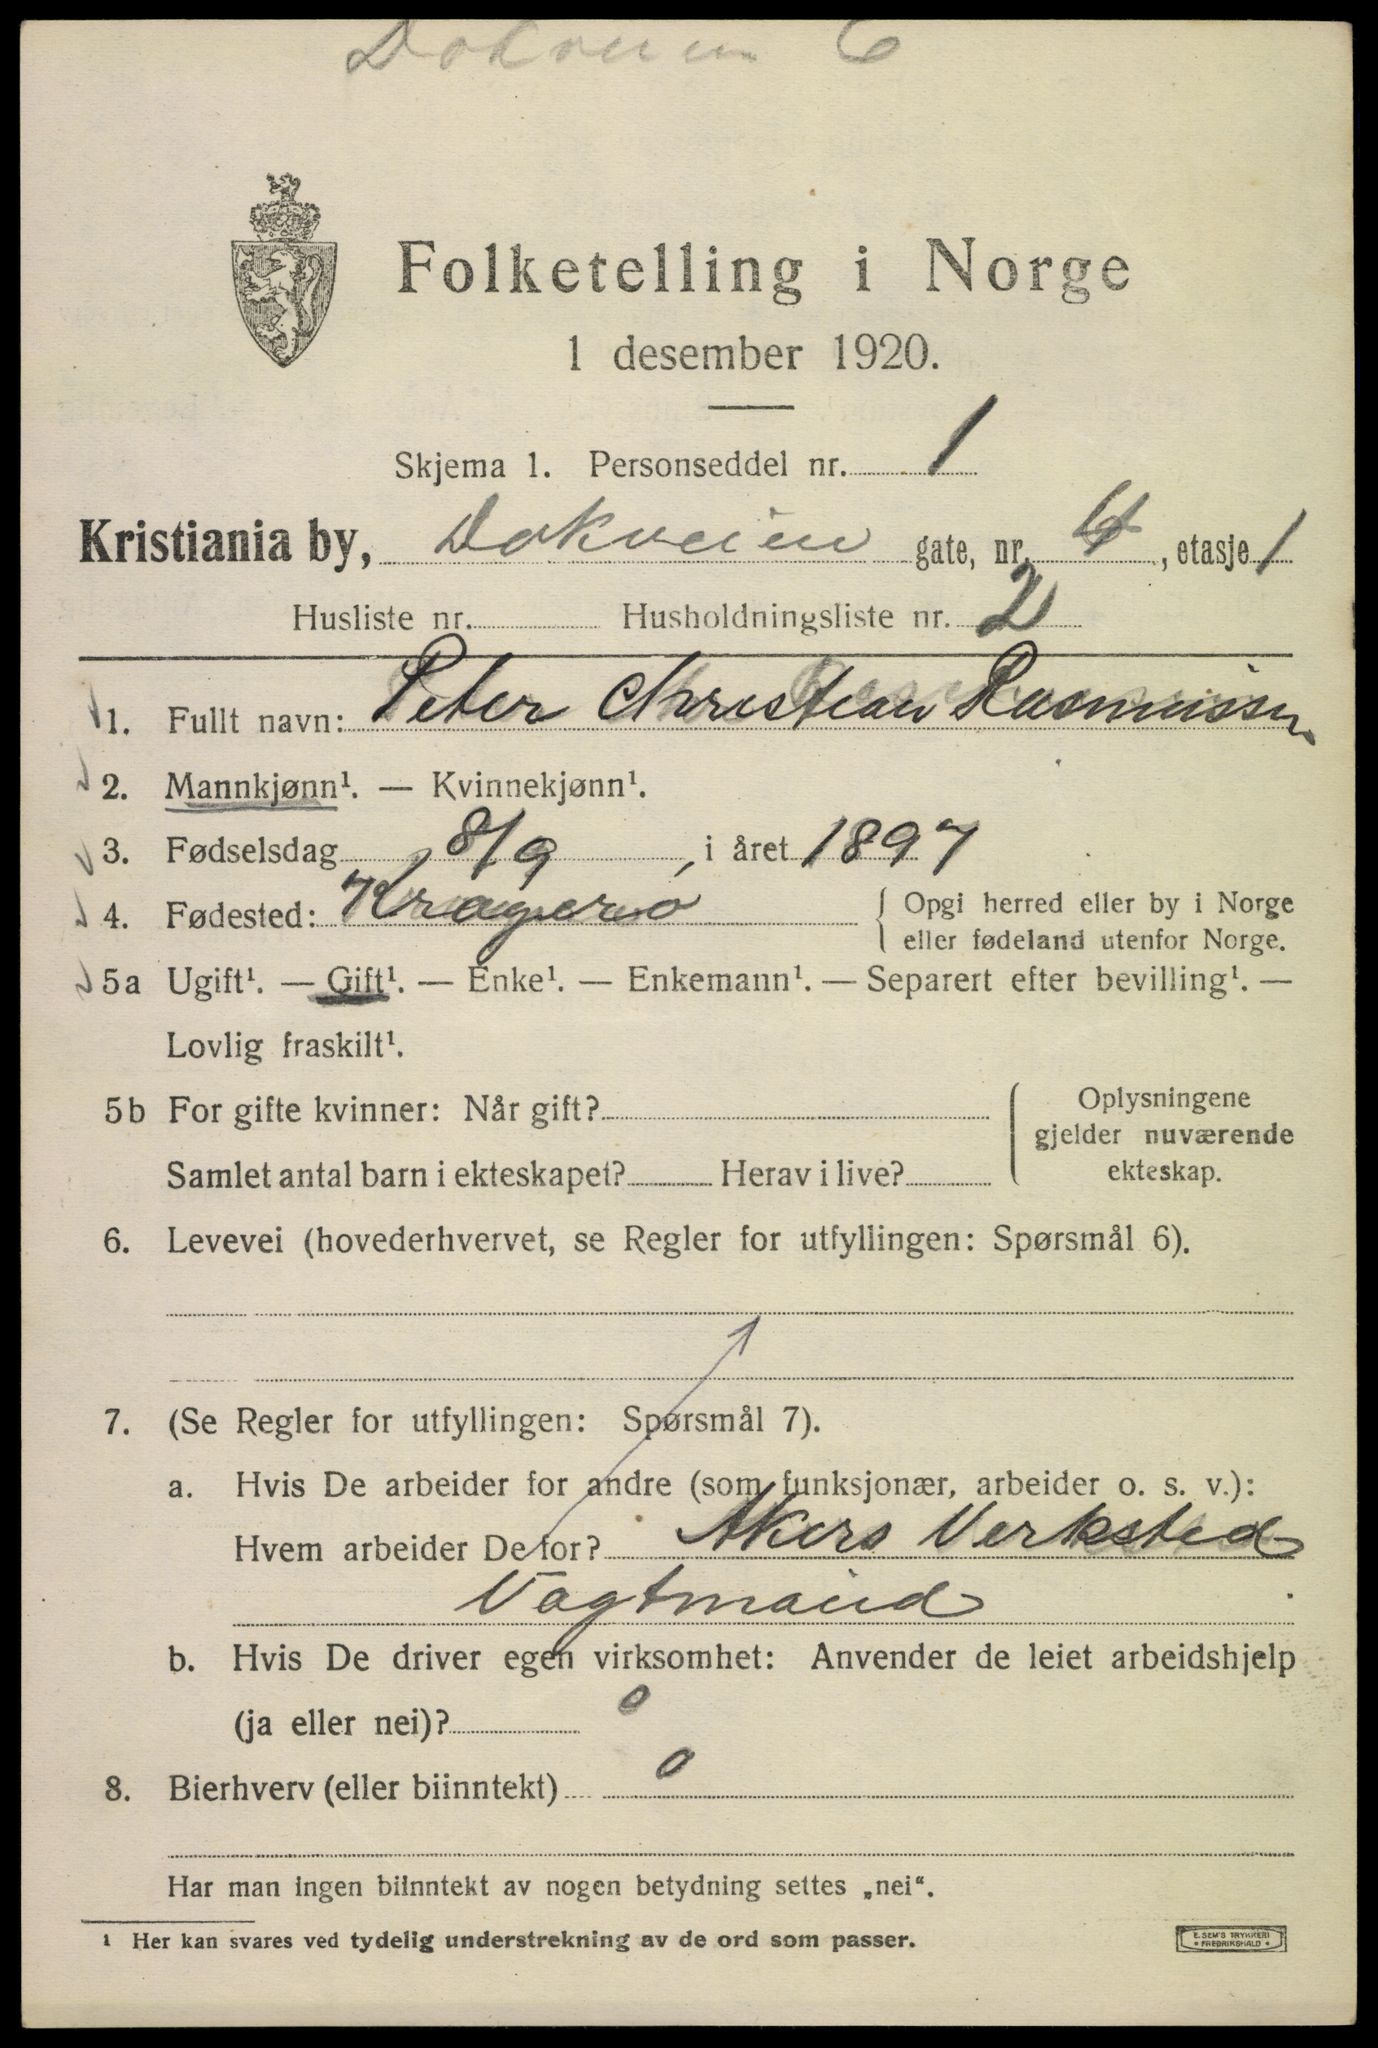 Dokveien 6
Folketelling i Norge
1 desember 1920.
Skjema 1. Personseddel nr. 1
Kristiania by, Dokveien gate, nr. , etasje 1
Husliste nr. Husholdningsliste nr. 2
1. Fullt navn: Peter Christian Rasmussen
2. Mannkjønn¹. — Kvinnekjønn¹.
3. Fødselsdag 8/9, i året 1897
4. Fødested: Kragerø { Opgi herred eller by i Norge
eller fødeland utenfor Norge.
5a Ugift¹. — Gift¹. — Enke¹. — Enkemann¹. — Separert efter bevilling¹. —
Lovlig fraskilt¹.
5b For gifte kvinner: Når gift? ( Oplysningene
gjelder nuværende
Samlet antal barn i ekteskapet? Herav i live? ekteskap.
6. Levevei (hovederhvervet, se Regler for utfyllingen: Spørsmål 6).
7. (Se Regler for utfyllingen: Spørsmål 7).
a. Hvis De arbeider for andre (som funksjonær, arbeider o. s. v.):
Hvem arbeider De for? Akers Verksted
Vagtmand
b. Hvis De driver egen virksomhet: Anvender de leiet arbeidshjelp
(ja eller nei)? 0
8. Bierhverv (eller biinntekt) 0
Har man ingen biinntekt av nogen betydning settes „nei“.
¹ Her kan svares ved tydelig understrekning av de ord som passer.
E. SEM'S TRYKKERI
• FREDRIKSHALD •